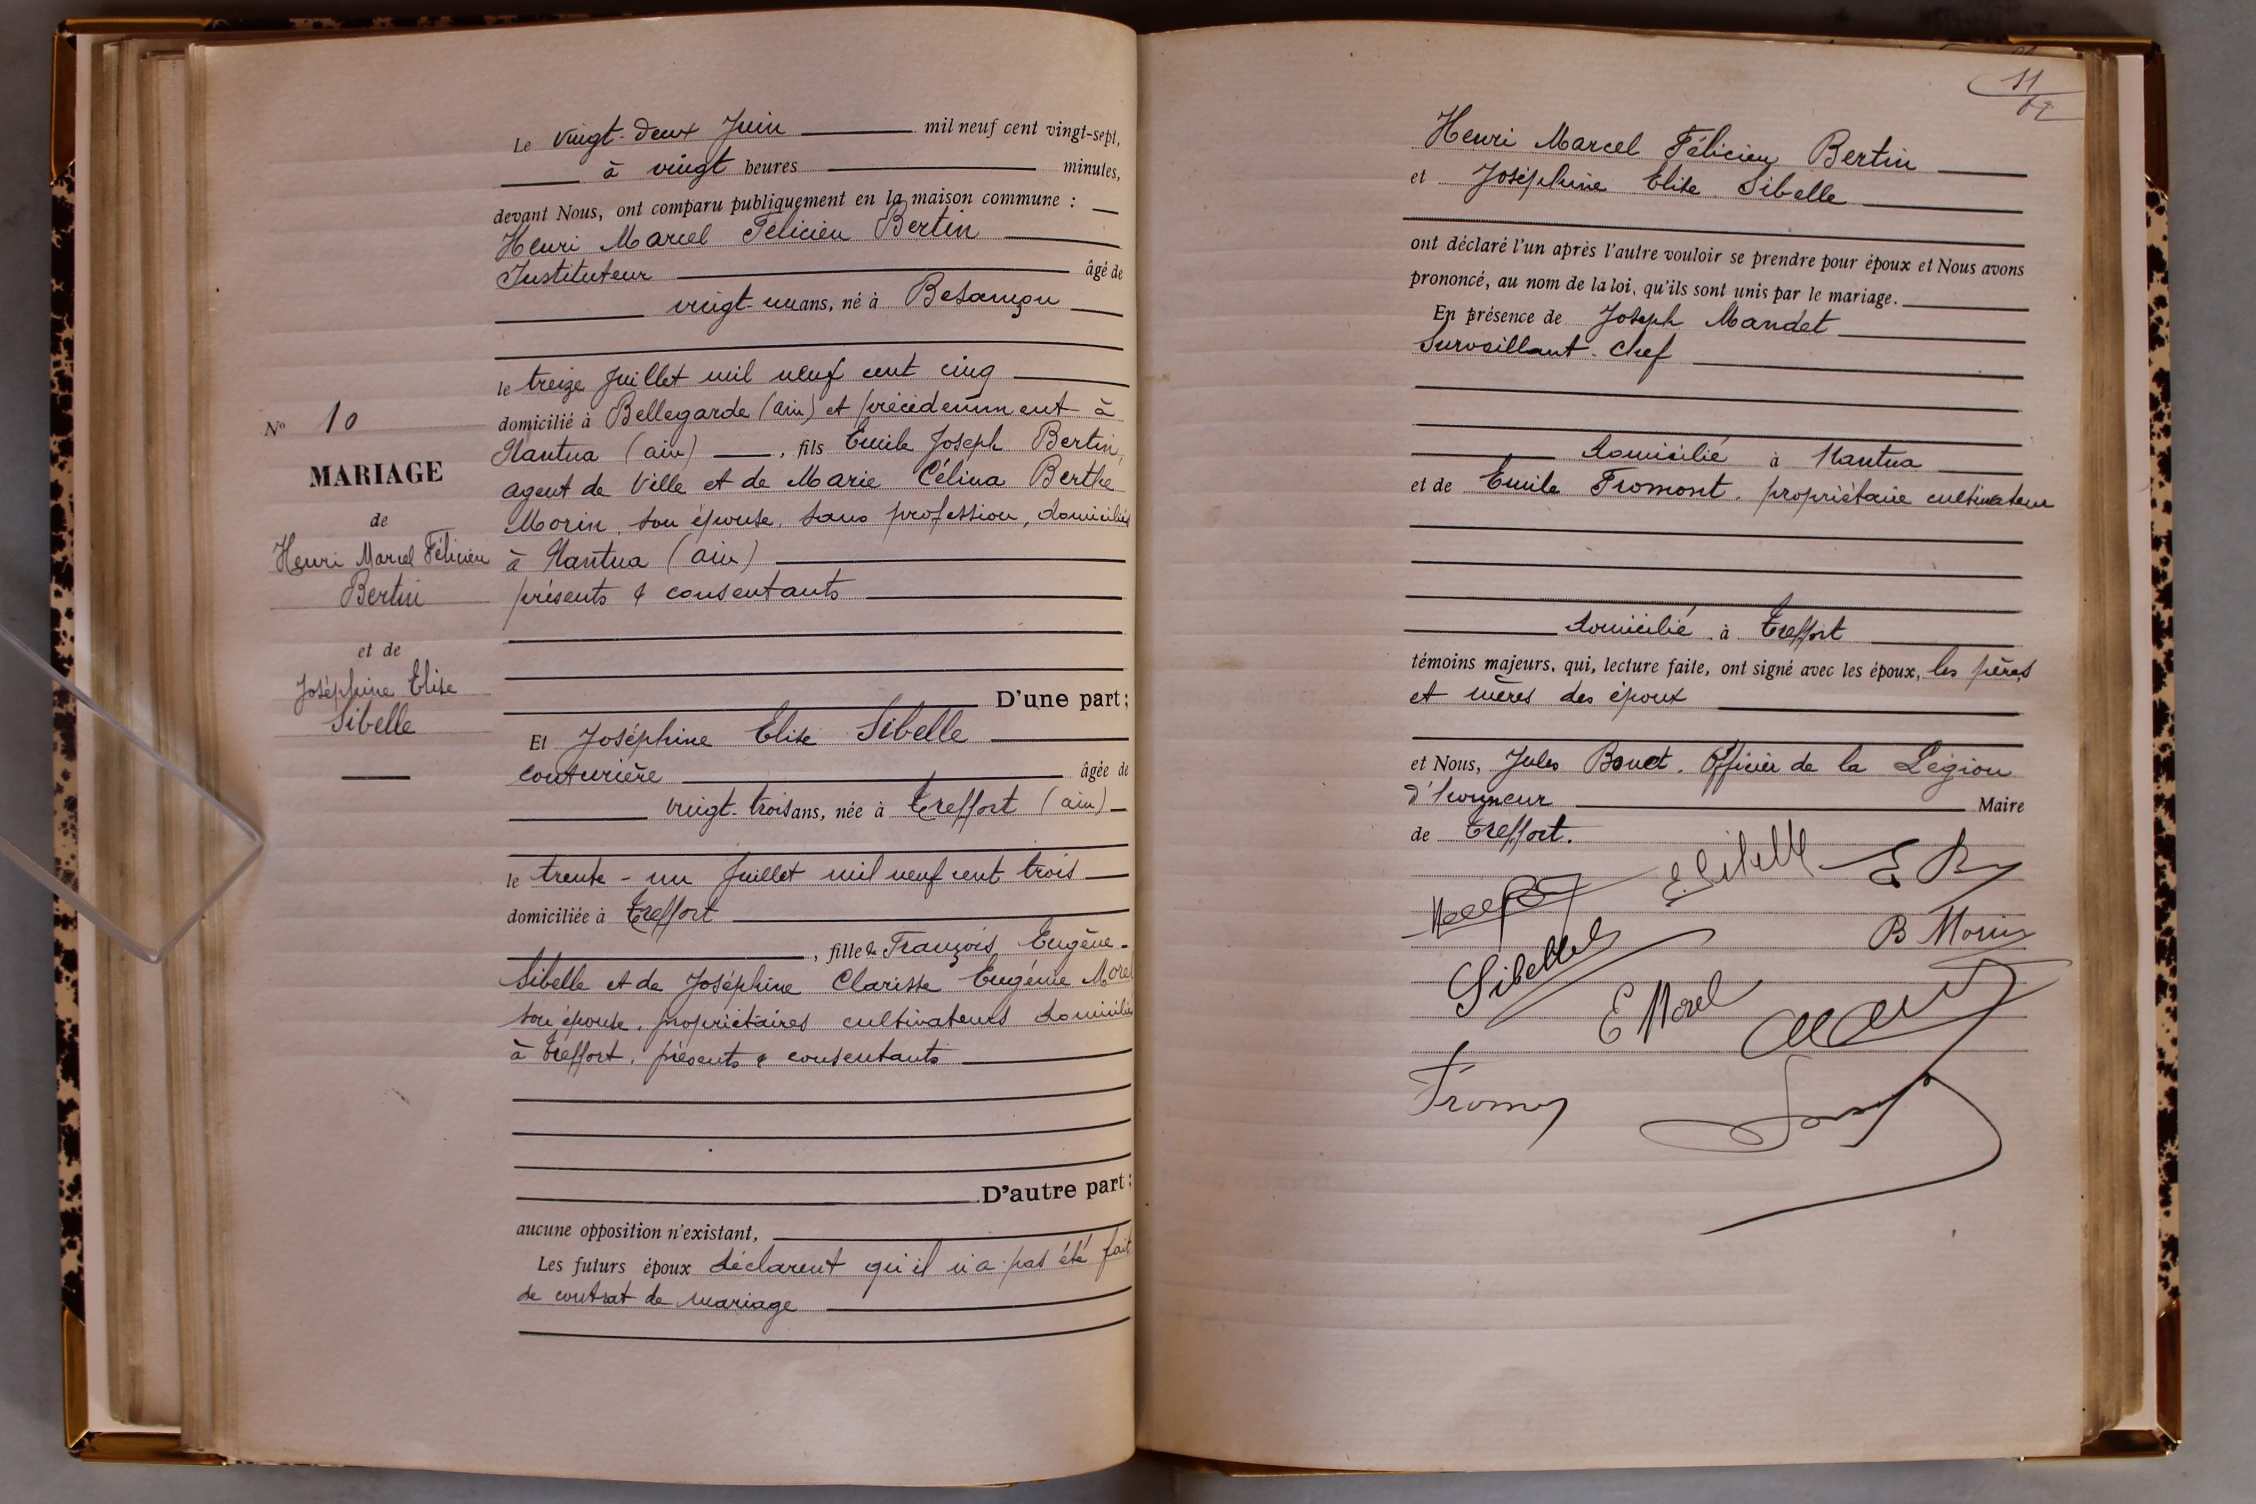 Le vingt-deux Juin mil neuf cent vingt-sept,
à vingt heures minutes,
devant Nous, ont comparu publiquement en la maison commune :
Henri Marcel Félicien Bertin
Instituteur âgé de
vingt-un ans, né à Besançon
le treize Juillet mil neuf cent cinq
domicilié à Bellegarde (ain) et précédemment à
Nantua (ain) , fils Emile Joseph Bertin,
agent de Ville et de Marie Célina Berthe
Morin, son épouse, sans profession, domiciliés
à Nantua (ain)
présents & consentants
D'une part ;
Et Joséphine Elise Sibelle
couturière âgée de
vingt-trois ans, née à Treffort (ain)
le trente-un Juillet mil neuf cent trois
domiciliée à Treffort
, fille de François Eugène
Sibelle et de Joséphine Clarisse Eugénie Morel
son épouse, propriétaires cultivateurs domiciliés
à Treffort, présents & consentants
D'autre part ;
aucune opposition n'existant,
Les futurs époux déclarent qu'il n'a pas été fait
de contrat de mariage
No 10
MARIAGE
de
Henri Marcel Félicien
Bertin
et de
Joséphine Elise
Sibelle
11
Henri Marcel Félicien Bertin
et Joséphine Elise Sibelle
ont déclaré l'un après l'autre vouloir se prendre pour époux et Nous avons
prononcé, au nom de la loi, qu'ils sont unis par le mariage.
En présence de Joseph Mandet
Surveillant-Chef
domicilié à Nantua
et de Emile Fromont, propriétaire cultivateur
domicilié à Treffort
témoins majeurs, qui, lecture faite, ont signé avec les époux, les pères
et mères des époux
et Nous, Jules Bouet, Officier de la Légion
d'honneur Maire
de Treffort.
E Sibelle
B Morin
Sibelle
E Morel